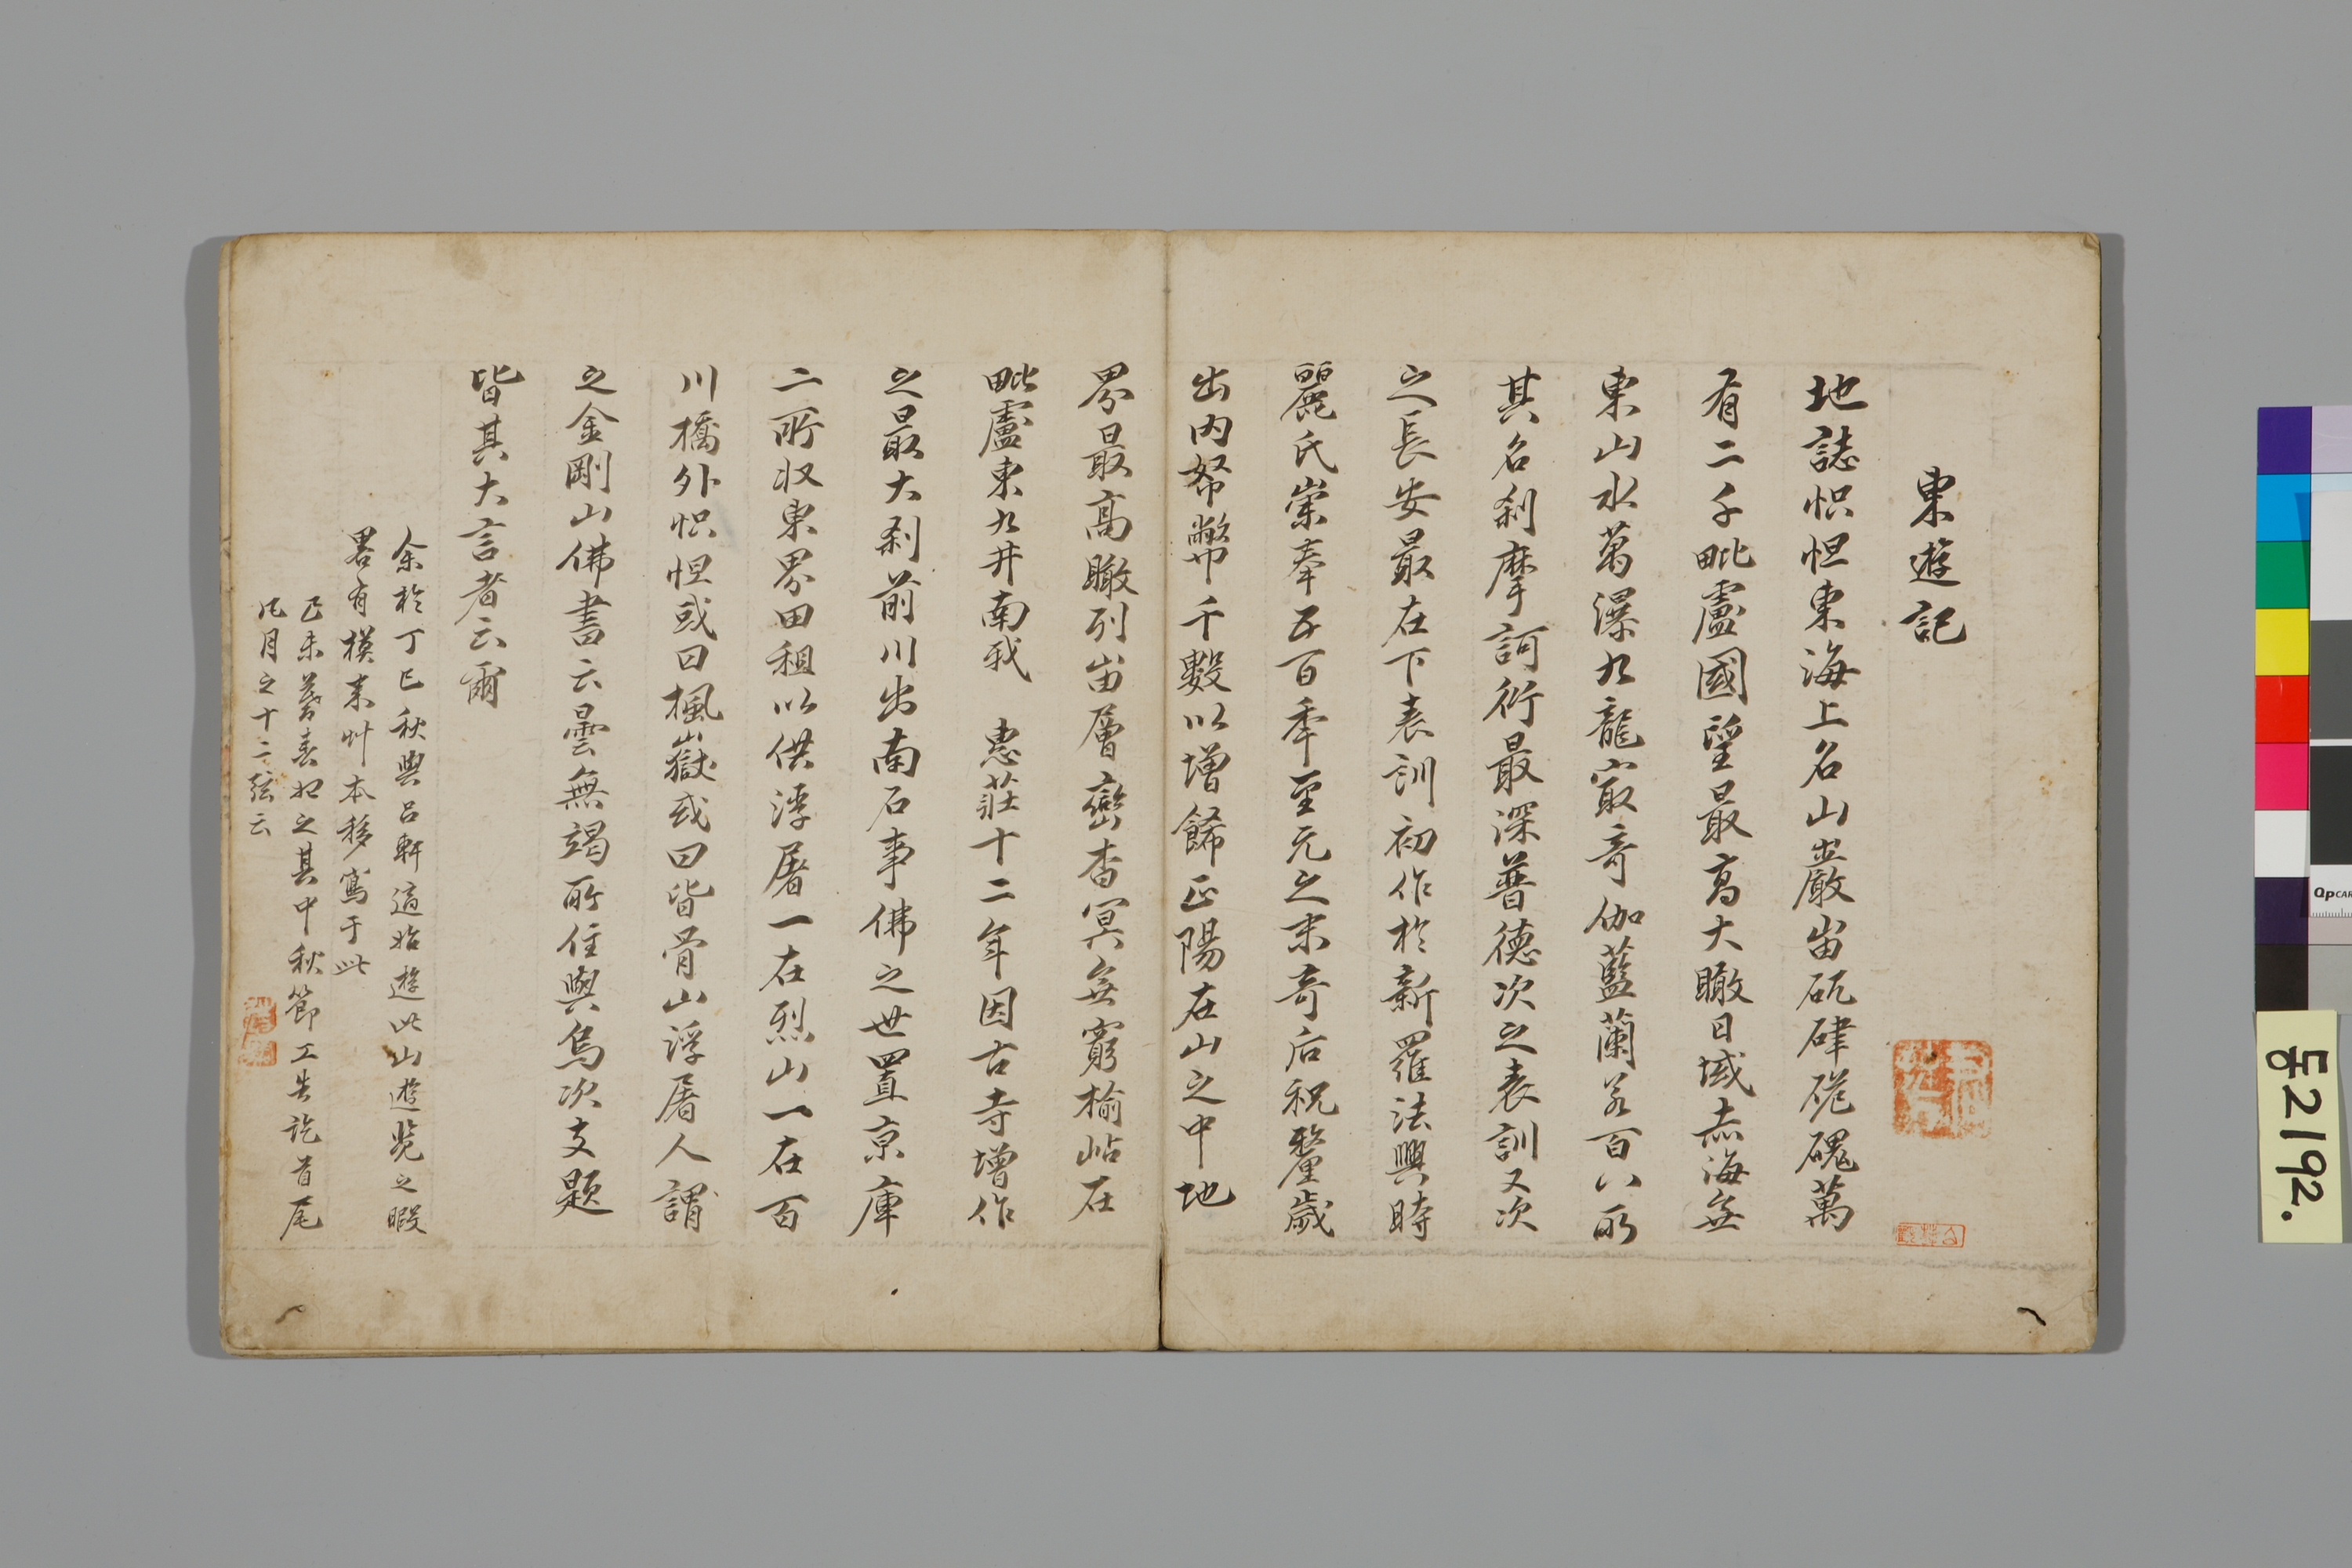 東遊記
地誌怾怛東海上名山巖岫砥硉磈磈萬
有二千毗盧國望最高大瞰日域赤海無
東山水萬瀑九龍寂奇伽藍蘭若百八所
其名刹摩訶衍最深普德次之表訓又次
之長安最在下表訓初作於新羅法興時
麗氏崇奉五百季至元之末奇后祝釐歲
出內帑幣千數以增餙正陽在山之中地
界最高瞰列岫層巒杳冥無窮楡岾在
毗盧東九井南我 惠莊十二年因古寺增作
之最大刹前川出南石事佛之世置京庫
二所收東界田租以供浮屠一在烈山一在百
川橋外怾怛或曰楓嶽或曰皆骨山浮屠人謂
之金剛山佛書云曇無竭所住與焉次支題
皆其大言者云爾
余於丁巳秋與呂軒適始遊此山遊览之暇
畧有模來艸本移寫于此
己未暮春始之其中秋節工告訖首尾
凡月之十二弦云
동2192.
QpCAR